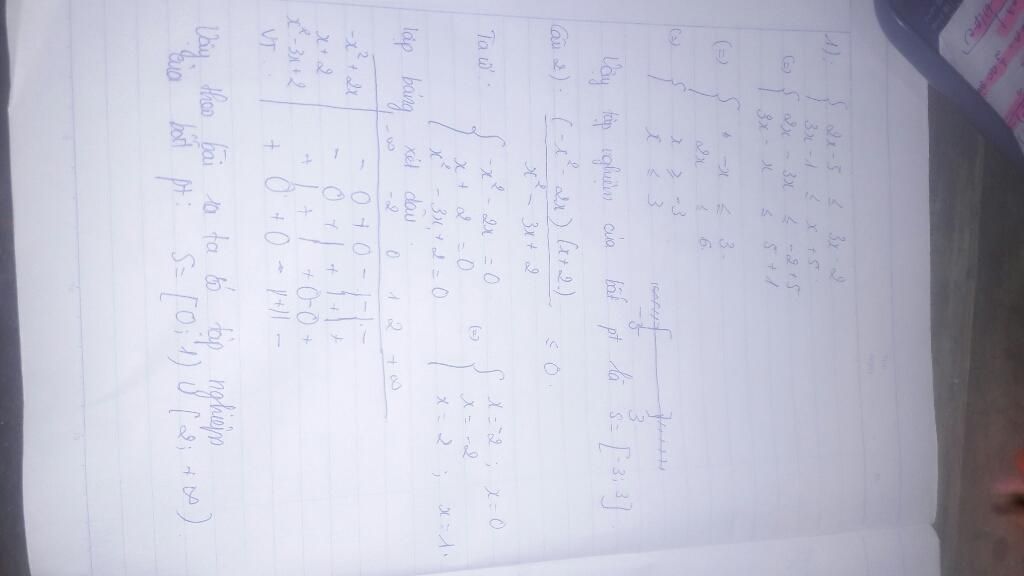 1). { 2x-5 ≤ 3x-2
3x-1 ≤ x+5
(=) { 2x - 3x ≤ -2+5
3x - x ≤ 5+1
(=) { -x ≤ 3
2x ≤ 6
(=) { x ≥ -3
x ≤ 3
-3 3
Vậy tập nghiệm của bất pt là S=[-3;3].
Câu 2). (-x² - 2x)(x+2) ≤ 0.
x² - 3x + 2
Ta có: { -x² - 2x = 0 (=) { x = -2 ; x = 0
x + 2 = 0 x = -2
x² - 3x + 2 = 0 x = 2 ; x = 1.
lập bảng xét dấu
-∞ -2 0 1 2 +∞
-x² + 2x - 0 + 0 - | - | -
x + 2 - 0 + | + | + | +
x² - 3x + 2 + | + | + 0 - 0 +
VT + 0 + 0 - || + || -
Vậy theo bài ra ta có tập nghiệm
của bất pt: S = [0;1) ∪ [2; +∞)